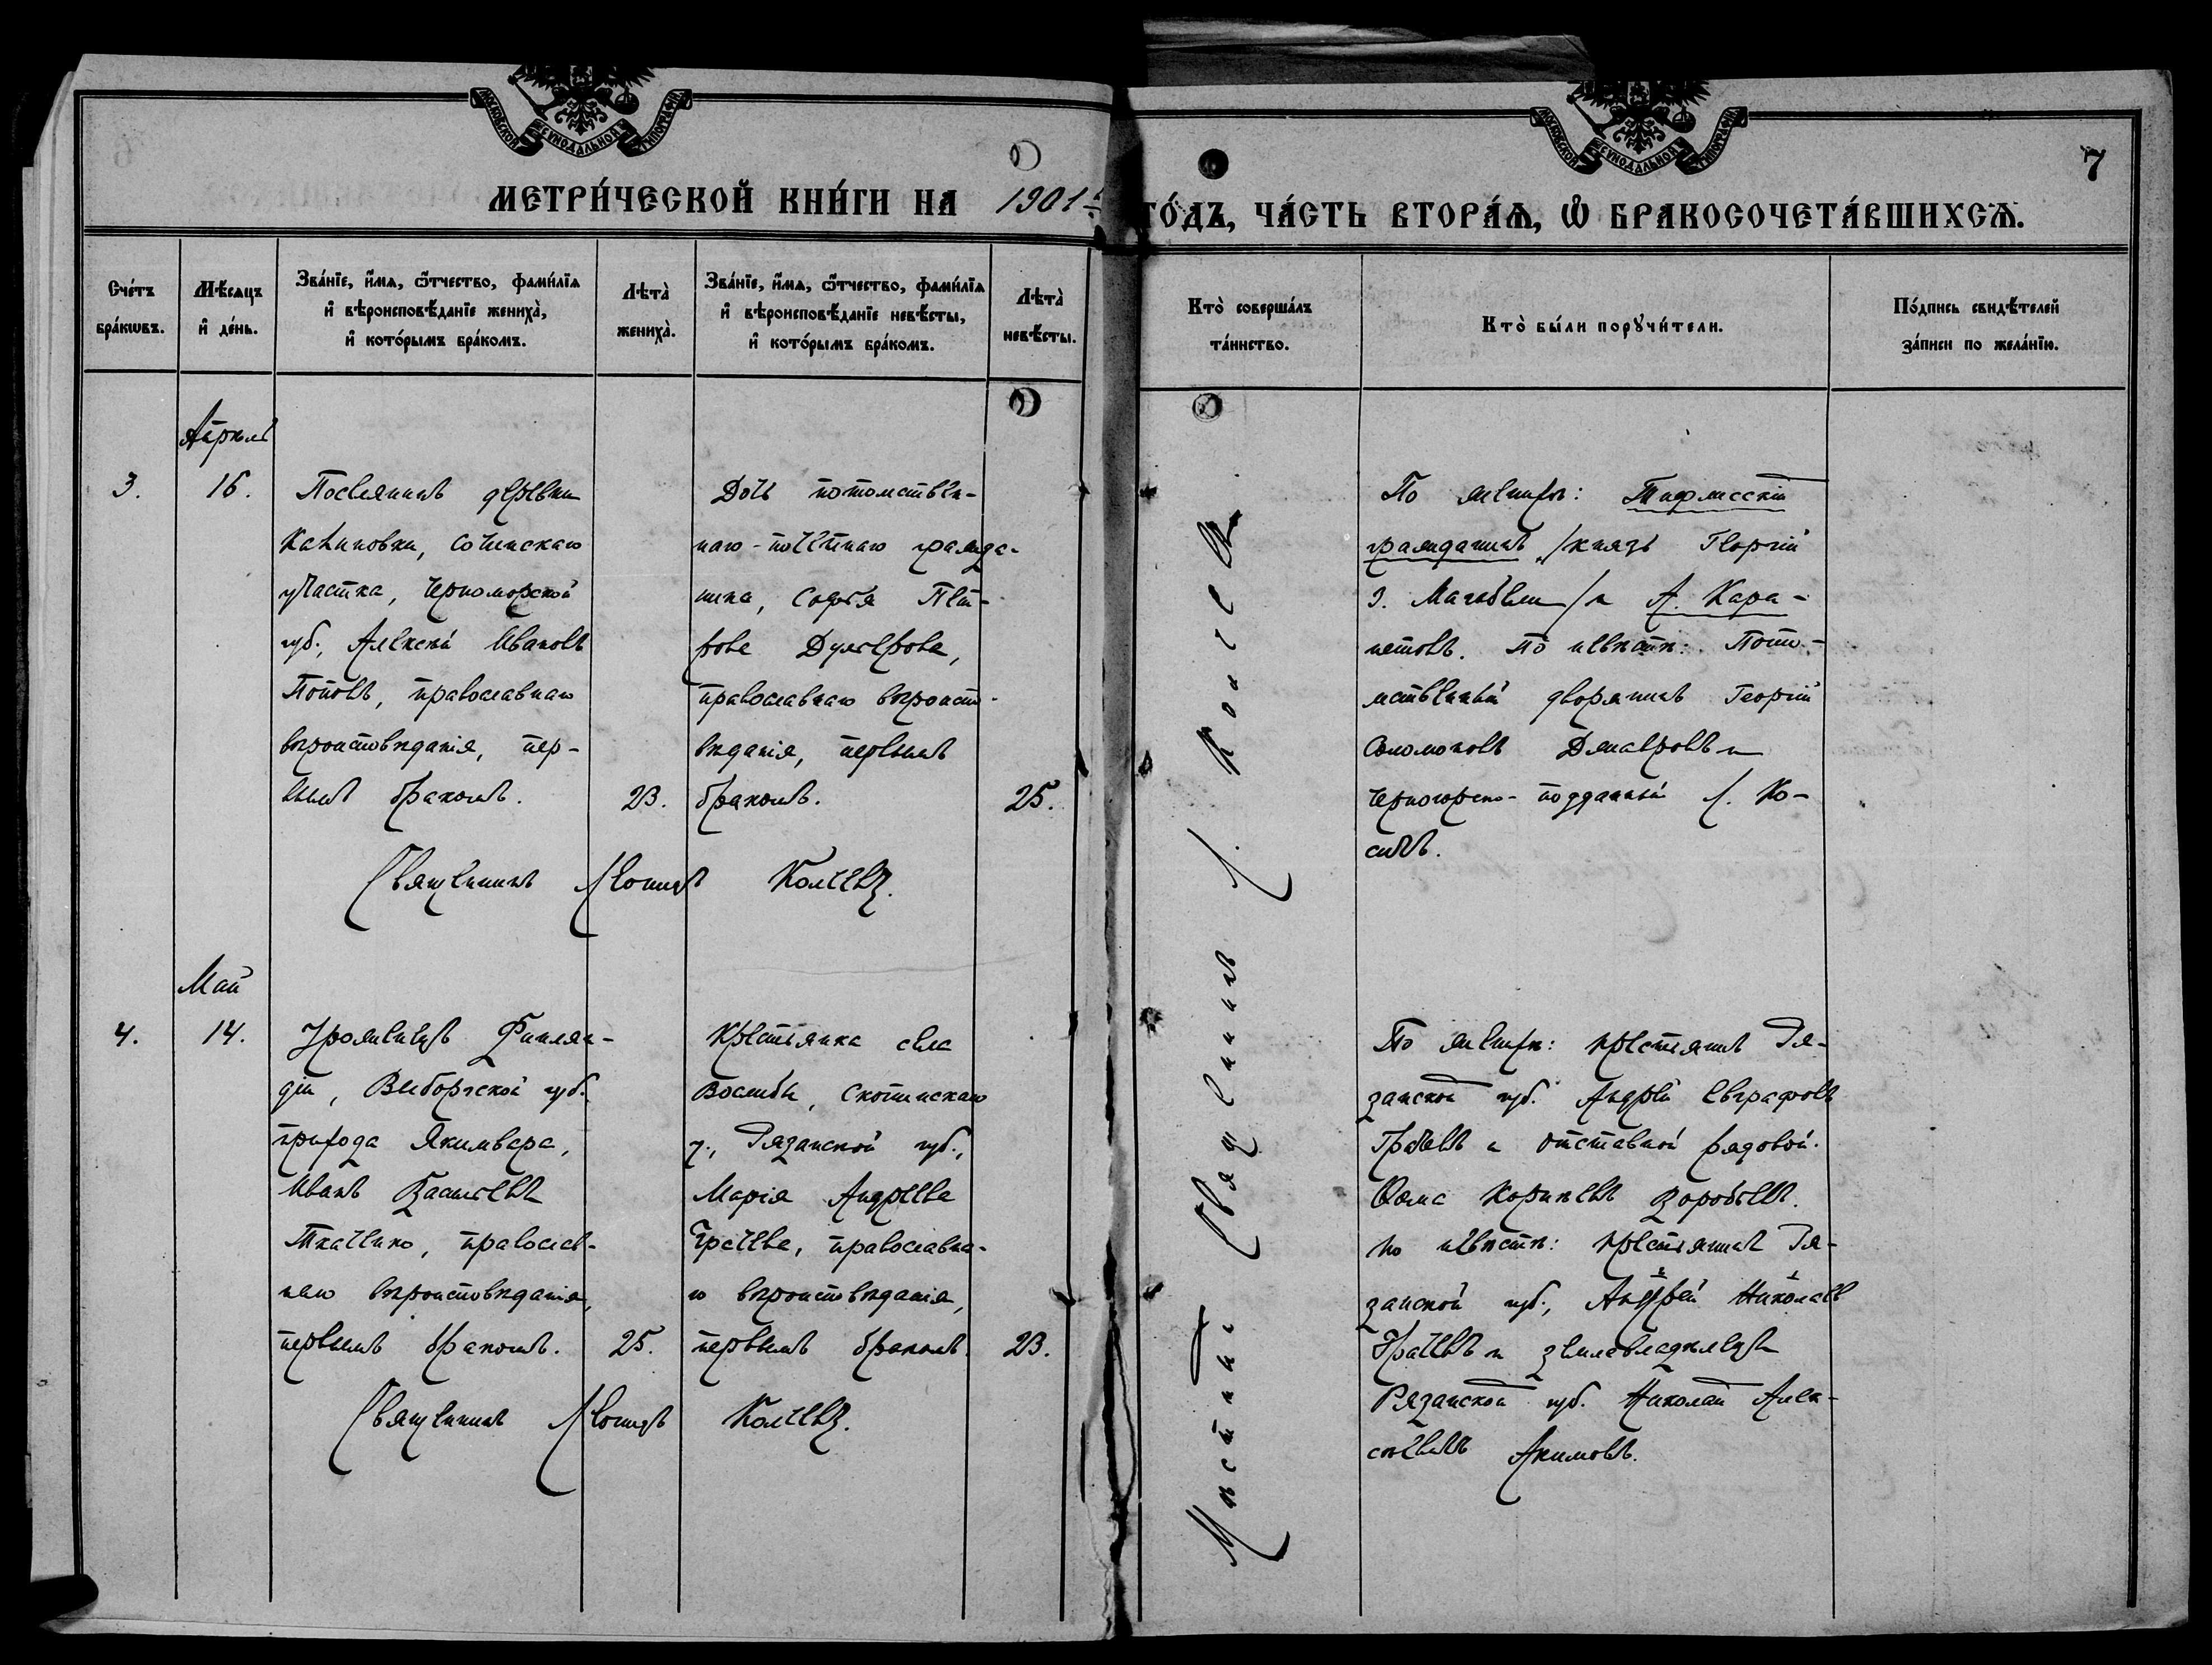 МОСКОВСКОЙ СѴНОДАЛЬНОЙ ТИПОГРАФІИ
МОСКОВСКОЙ СѴНОДАЛЬНОЙ ТИПОГРАФІИ
7
МЕТРИ́ЧЕСКОЙ КНИ́ГИ НА 1901 ГО́ДЪ, ЧА́СТЬ ВТОРА́Ѧ, Ѽ БРАКОСОЧЕТА́ВШИХСѦ.
Сче́тъ бра́кѡвъ.
Мѣ́сяцъ и҆ де́нь.
Зва́нїе, и҆́мѧ, ѻ҆́тчество, фами́лїѧ и҆ вѣроисповѣ́данїе жениха̀, и҆ кото́рымъ бра́комъ.
Лѣта̀ жениха̀.
Зва́нїе, и҆́мѧ, ѻ҆́тчество, фами́лїѧ и҆ вѣроисповѣ́данїе невѣ́сты, и҆ кото́рымъ бра́комъ.
Лѣта̀ невѣ́сты.
Кто̀ соверша́лъ та́инство.
Кто̀ бы́ли порꙋчи́тели.
По́дпись свидѣ́телей за́писи по жела́нїю.
Апрѣль
3.
16.
Поселянинъ деревни
Калиновки, Сочинскаго
участка, Черноморской
губ., Алексѣй Ивановъ
Поповъ, православнаго
вѣроисповѣданія, пер-
вымъ бракомъ.
23.
Дочь потомствен-
наго-почетнаго гражда-
нина, Софья Пет-
рова
православнаго вѣроиспо-
вѣданія, первымъ
бракомъ.
25.
Священникъ Леонидъ
По женихѣ: Тифлисскій
гражданинъ /князь Георгій
/и А. Кара-
петовъ. По невѣстѣ: Пото-
мственный дворянинъ Георгій
Соломоновъ
Черногорско-подданный
Май
4.
14.
Уроженецъ Финлян-
діи, Выборгской губ.
прихода Якимвара,
Иванъ Васильевъ
Ткаченко, православ-
наго вѣроисповѣданія,
первымъ бракомъ.
25.
Крестьянка села
Скопинскаго
у., Рязанской губ.,
Марія Андреева
Грачева, православна-
го вѣроисповѣданія,
первымъ бракомъ.
23.
Священникъ Леонидъ
По женихѣ: крестьянинъ Ря-
занской губ. Андрей Евграфовъ
и отставной рядовой
Ѳома Корнѣевъ Воробьевъ.
по невѣстѣ: крестьянинъ Ря-
занской губ., Андрей Николаевъ
Грачевъ и землевладѣлецъ
Рязанской губ. Николай Алек-
сѣевичъ Акимовъ.
Мѣстный Священникъ Л.